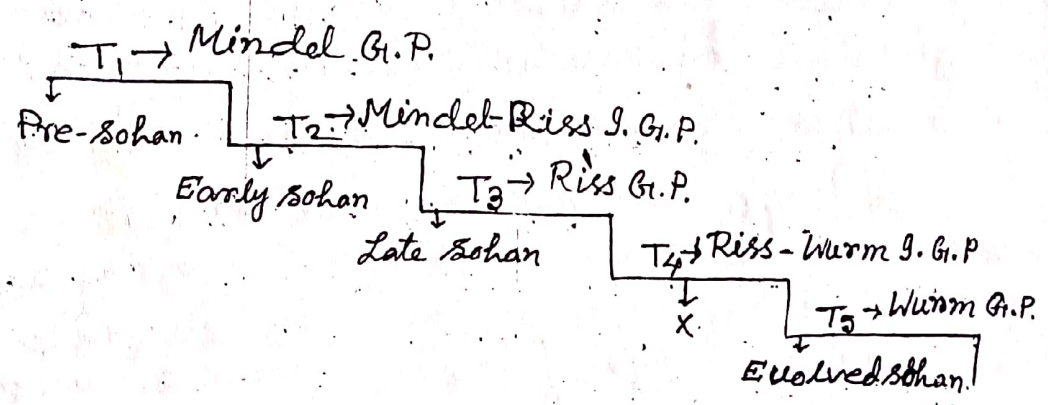 T1 → Mindel G.P.
Pre-Sohan.
T2 → Mindel-Riss I.G.P.
Early Sohan
T3 → Riss G.P.
Late Sohan
T4 → Riss-Wurm I.G.P
X
T5 → Wurm G.P.
Evolved Sohan